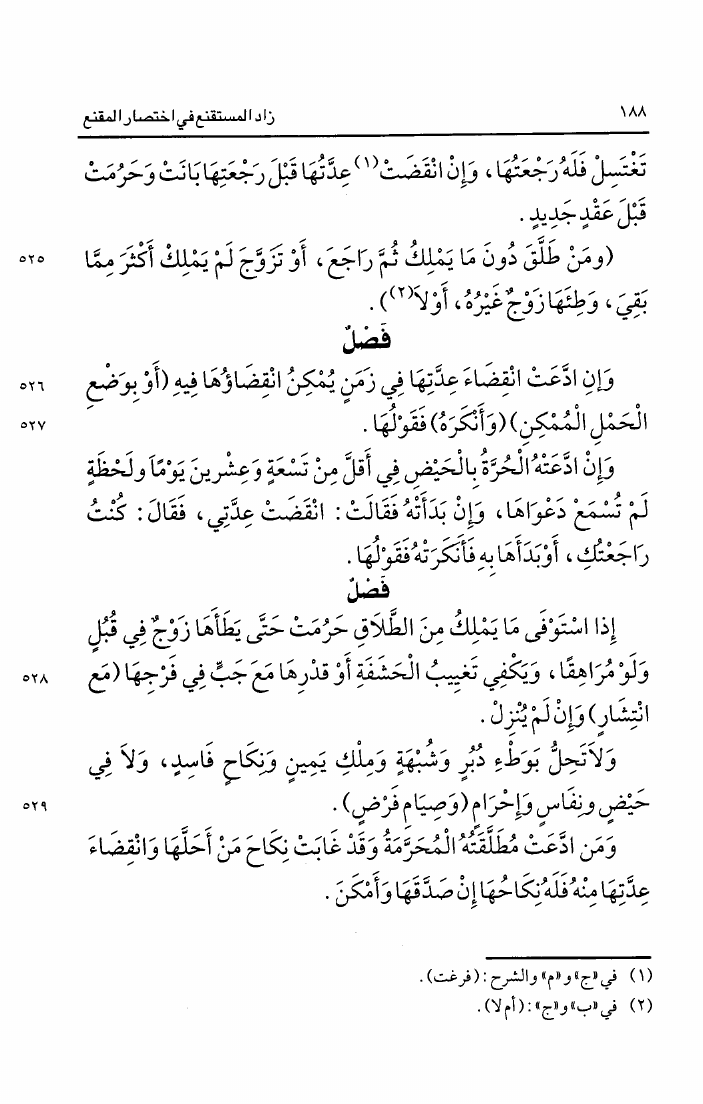 ١٨٨ زاد المستقنع في اختصار المقنع
تَغْتَسِلْ فَلَهُ رَجْعَتُهَا، وَإِنْ انْقَضَتْ(١) عِدَّتُهَا قَبْلَ رَجْعَتِهَا بَانَتْ وَحَرُمَتْ
قَبْلَ عَقْدٍ جَدِيدٍ.
(ومَنْ طَلَّقَ دُونَ مَا يَمْلِكُ ثُمَّ رَاجَعَ، أَوْ تَزَوَّجَ لَمْ يَمْلِكْ أَكْثَرَ مِمَّا ٥٢٥
بَقِيَ، وَطِئَهَا زَوْجٌ غَيْرُهُ، أَوْلاَ(٢)).
فَصْلٌ
وَإِنِ ادَّعَتْ انْقِضَاءَ عِدَّتِهَا فِي زَمَنٍ يُمْكِنُ انْقِضَاؤُهَا فِيهِ (أَوْ بِوَضْعِ ٥٢٦
الْحَمْلِ الْمُمْكِنِ) (وَأَنْكَرَهُ) فَقَوْلُهَا. ٥٢٧
وَإِنْ ادَّعَتْهُ الْحُرَّةُ بِالْحَيْضِ فِي أَقَلَّ مِنْ تَسْعَةٍ وَعِشْرينَ يَوْمًا ولَحْظَةٍ
لَمْ تُسْمَعْ دَعْوَاهَا، وَإِنْ بَدَأَتْهُ فَقَالَتْ: انْقَضَتْ عِدَّتِي، فَقَالَ: كُنْتُ
رَاجَعْتُكِ، أَوْ بَدَأَهَا بِهِ فَأَنْكَرَتْهُ فَقَوْلُهَا.
فَصْلٌ
إِذا اسْتَوْفَى مَا يَمْلِكُ مِنَ الطَّلَاقِ حَرُمَتْ حَتَّى يَطَأَهَا زَوْجٌ فِي قُبُلٍ
وَلَوْ مُرَاهِقًا، وَيَكْفِي تَغْيِيبُ الْحَشَفَةِ أَوْ قدْرِهَا مَعَ جَبٍّ فِي فَرْجِهَا (مَعَ ٥٢٨
انْتِشَارٍ) وَإِنْ لَمْ يُنْزِلْ.
وَلاَ تَحِلُّ بَوَطْءِ دُبُرٍ وَشُبْهَةٍ وَمِلْكِ يَمِينٍ وَنِكَاحٍ فَاسِدٍ، وَلاَ فِي
حَيْضٍ ونِفَاسٍ وَإِحْرَامٍ (وَصِيَامِ فَرْضٍ). ٥٢٩
وَمَن ادَّعَتْ مُطَلَّقَتُهُ الْمُحَرَّمَةُ وَقَدْ غَابَتْ نِكَاحَ مَنْ أَحَلَّهَا وَانْقِضَاءَ
عِدَّتِهَا مِنْهُ فَلَهُ نِكَاحُهَا إِنْ صَدَّقَهَا وَأَمْكَنَ.
(١) في «ج» و«م» والشرح: (فرغت).
(٢) في «ب» و«ج»: (أم لا).